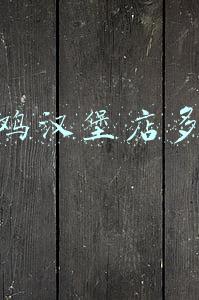 鸡汉堡店多